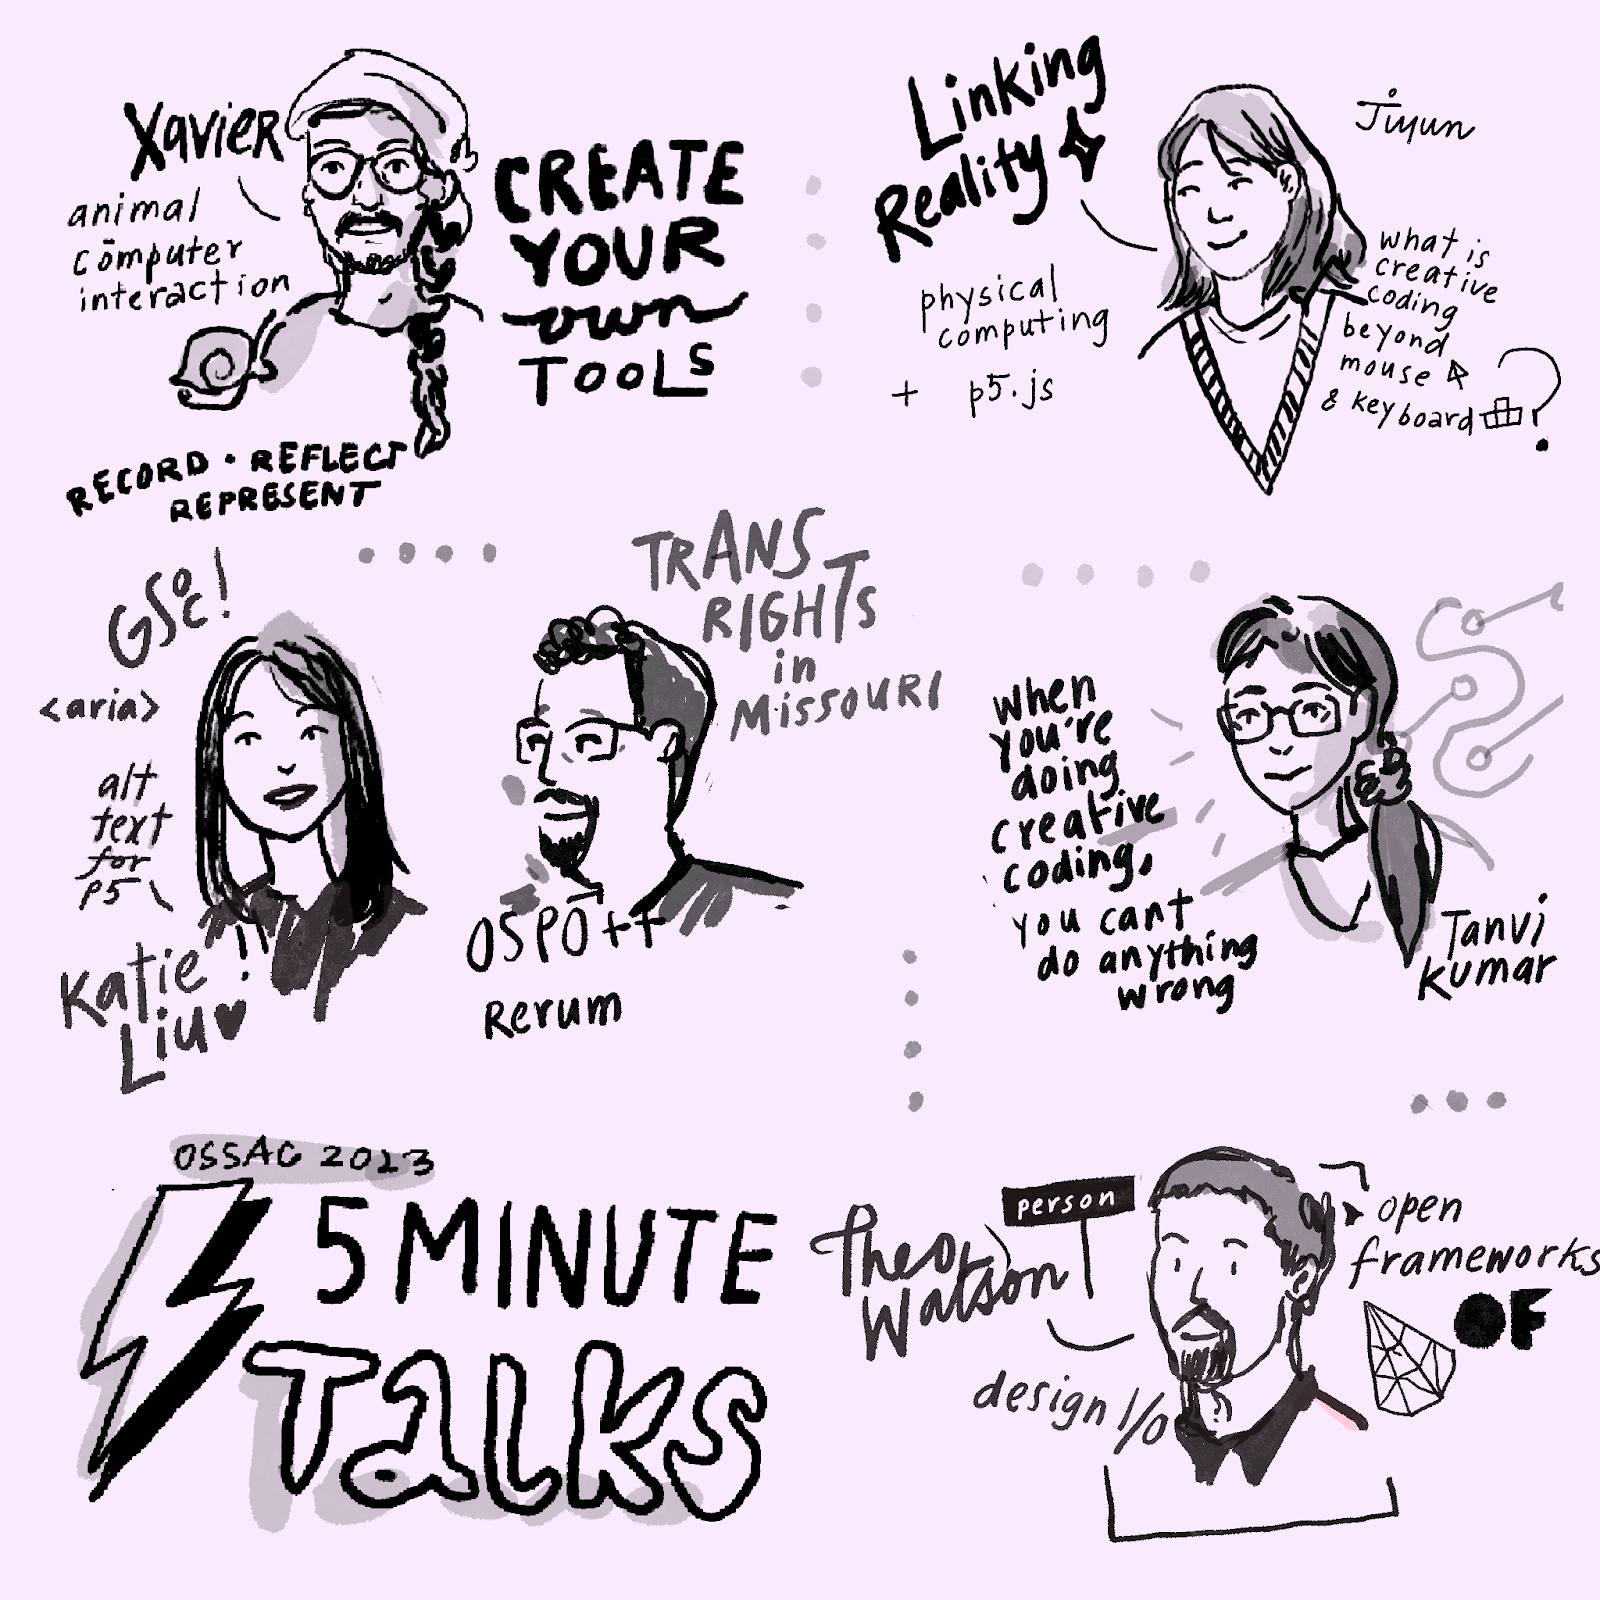 Xavier
animal
computer
interaction
CREATE
YOUR
own
TOOLS
RECORD · REFLECT
REPRESENT
Linking
Reality
Jiyun
physical
computing
+ p5.js
what is
creative
coding
beyond
mouse
& keyboard ?
GSoC!
<aria>
alt
text
for
p5
Katie
Liu
TRANS
RIGHTS
in
MISSOURI
OSPO++
Rerum
when
you're
doing
creative
coding,
you cant
do anything
wrong
Tanvi
Kumar
OSSAC 2023
5 MINUTE
Talks
person
Theo
Watson
design I/O
open
frameworks
OF